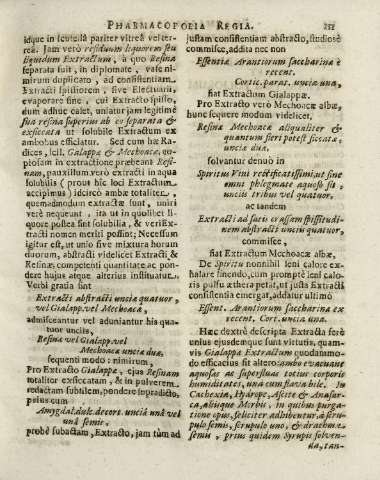 PHARMACOPOEIA REGIA.
idque in scutellâ pariter vitreâ velter-
rea. Jam verò residuum liquorem seu
liquidum Extractum, à quo Resina
separata fuit, in diplomate, vase ni-
mirum duplicato, ad consistentiam
Extracti spissiorem, sive Electuarii,
evaporare sine, cui Extracto spisso,
dum adhuc calet, uniatur jam legitimè
sua resina superius ab eo separata &
exsiccata ut solubile Extractum ex
ambobus efficiatur. Sed cum hæ Ra-
dices, scil. Gialappa & Mechoaca, co-
piosam in extractione præbeant Resi-
nam, pauxillùm verò extracti in aqua
solubilis (prout hîc loci Extractum
accipimus) idcircò ambæ totaliter,
quemadmodum extractæ sunt, uniri
verò nequeunt, ita ut in quolibet li-
quore postea sint solubilia, & veri Ex-
tracti nomen meriri possint; Necessum
igitur est, ut unio sive mixtura horum
duorum, abstracti videlicet Extracti &
Resinæ competenti quantitate ac pon-
dere hujus atque alterius instituatur.
Verbi gratia sint
Extracti abstracti unciæ quatuor,
vel Gialapp. vel Mechoacæ,
admisceantur vel aduniantur his qua-
tuor unciis,
Resinæ vel Gialapp. vel
Mechoacæ unciæ duæ.
sequenti modo: nimirum,
Pro Extracto Gialappæ, ejus Resinam
totaliter exsiccatam, & in pulverem
redactam subtilem, pondere supradicto,
prius cum
Amygdal. dulc. decort. unciâ unâ vel
unâ semis,
probè subactam, Extracto, jam tùm ad
justam consistentiam abstracto, studiosè
commisce, addita nec non
Essentiæ Arantiorum saccharinæ è
recent.
Cortic. parat. uncia una,
fiat Extractum Gialappæ.
Pro Extracto verò Mechoacæ albæ,
hunc sequere modum videlicet,
Resinæ Mechoacæ aliqualiter &
quantum fieri potest siccatæ,
unciæ duæ,
solvantur denuò in
Spiritus Vini rectificatissimi, ut sine
omni phlegmate aquoso sit,
unciis tribus vel quatuor,
ac tandem
Extracti ad satis crassam spissitudi-
nem abstracti unciis quatuor,
commisce,
fiat Extractum Mechoacæ albæ,
De Spiritu nonnihil leni calore ex-
halare sinendo, cum promptè leni calo-
ris pulsu æthera petat, ut justa Extracti
consistentia emergat, addatur ultimò
Essent. Arantiorum saccharinæ ex
recent. Cort. uncia una.
Hæc dextrè descripta Extracta ferè
unius ejusdemque sunt virtutis, quam-
vis Gialappæ Extractum quodammo-
do efficacius sit altero: ambo evacuant
aquosas ac superfluas totius corporis
humiditates, unà cum flava bile. In
Cachexia, Hydrope, Ascite & Anasar-
ca, aliisque Morbis, in quibus purga-
tione opus, feliciter adhibentur, à scru-
pulo semis, scrupulo uno, & drachmæ
semis, prius quidem Syrupis solven-
da, tan-